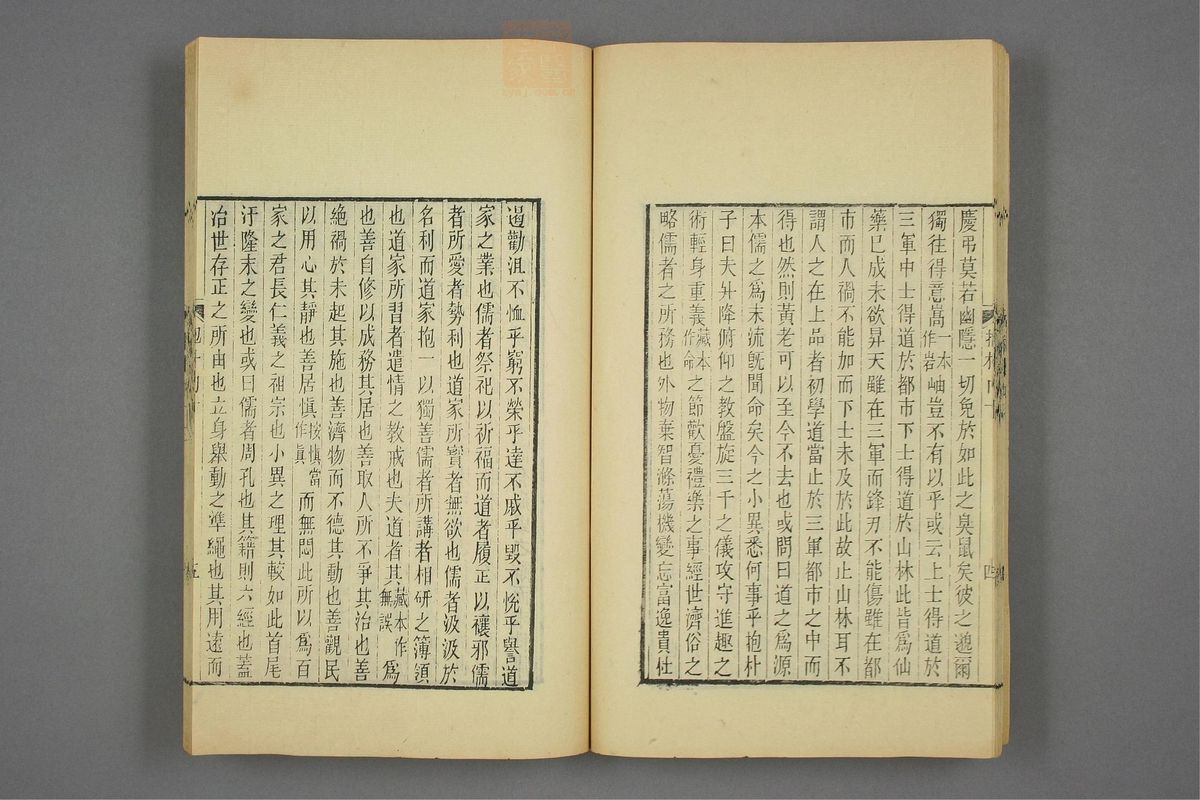 慶弔莫若幽隱一切免於如此之臭鼠矣彼之邈爾
獨往得意嵩一本作岩岫豈不有以乎或云上士得道於
三軍中士得道於都市下士得道於山林此皆爲仙
藥已成未欲昇天雖在三軍而鋒刃不能傷雖在都
市而人禍不能加而下士未及於此故止山林耳不
謂人之在上品者初學道當止於三軍都市之中而
得也然則黃老可以至今不去也或問曰道之爲源
本儒之爲末流旣聞命矣今之小異悉何事乎抱朴
子曰夫升降俯仰之教盤旋三千之儀攻守進趣之
術輕身重義藏本作命之節歡憂禮樂之事經世濟俗之
略儒者之所務也外物棄智滌蕩機變忘富逸貴杜
四
遏勸沮不恤乎窮不榮乎達不戚乎毀不悅乎譽道
家之業也儒者祭祀以祈福而道者履正以禳邪儒
者所愛者勢利也道家所寶者無欲也儒者汲汲於
名利而道家抱一以獨善儒者所講者相研之簿領
也道家所習者遣情之教戒也夫道者其藏本作無誤爲
也善自修以成務其居也善取人所不爭其治也善
絕禍於未起其施也善濟物而不德其動也善觀民
以用心其靜也善居愼按愼當作眞而無悶此所以爲百
家之君長仁義之祖宗也小異之理其較如此首尾
汙隆未之變也或曰儒者周孔也其籍則六經也蓋
治世存正之所由也立身舉動之準繩也其用遠而
五